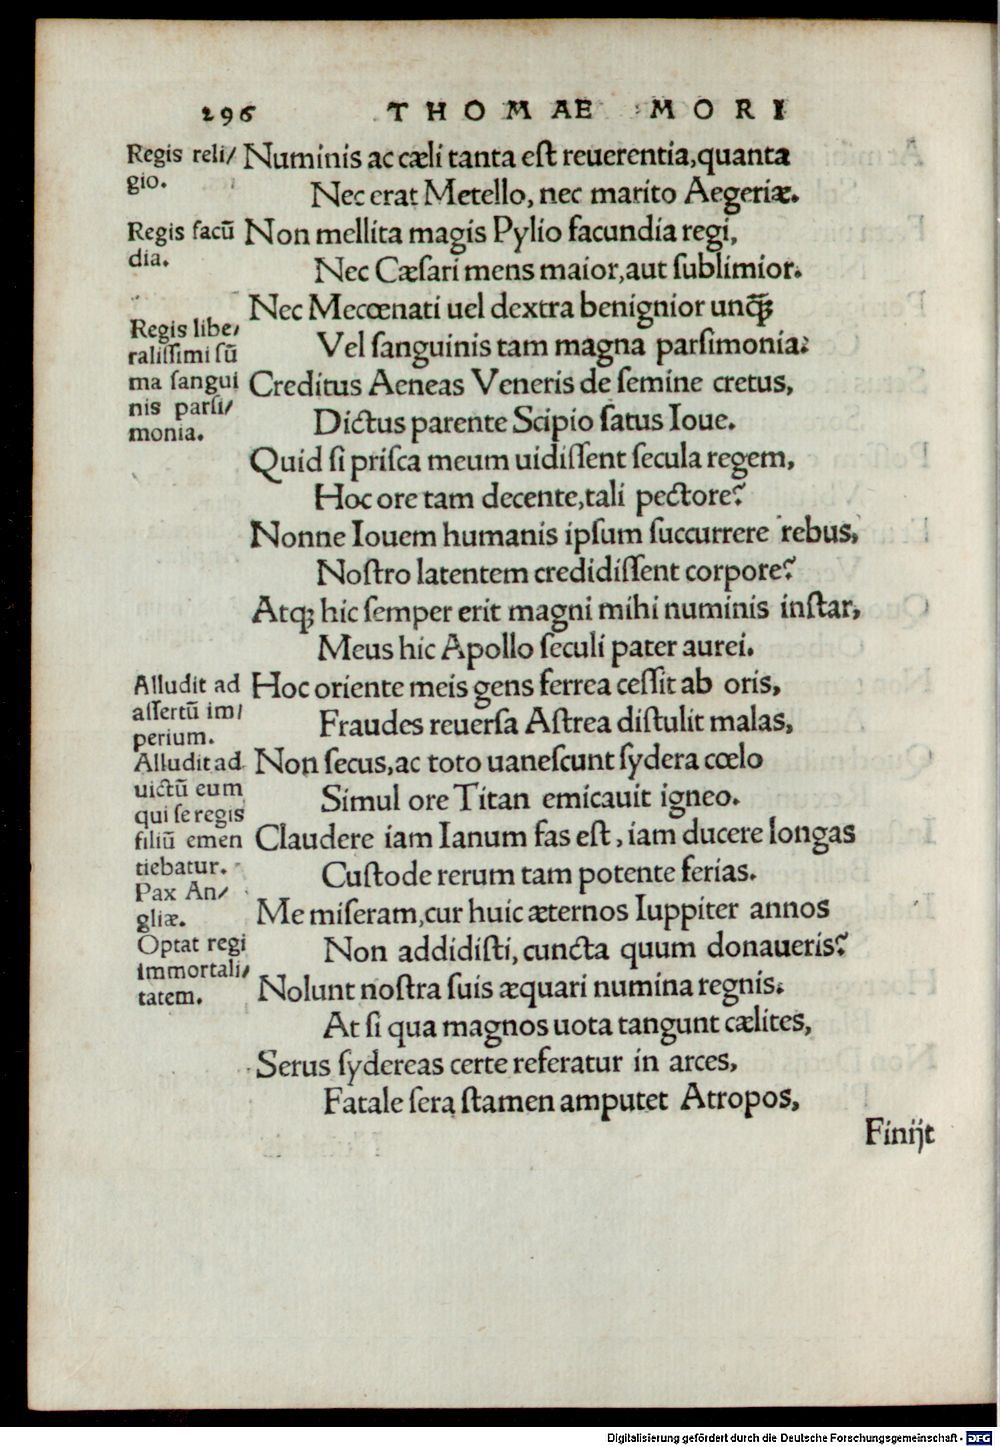 296 THOMAE MORI
Regis reli/
gio.
Numinis ac cæli tanta eſt reuerentia,quanta
Nec erat Metello, nec marito Aegeriæ.
Regis facũ
dia.
Non mellita magis Pylio facundia regi,
Nec Cæſari mens maior,aut ſublimior.
Nec Mecœnati uel dextra benignior unq̃ꝫ
Regis libe/
raliſſimi ſũ
ma ſangui
nis parſi/
monia.
Vel ſanguinis tam magna parſimonia:
Creditus Aeneas Veneris de ſemine cretus,
Dictus parente Scipio ſatus Ioue.
Quid ſi priſca meum uidiſſent ſecula regem,
Hoc ore tam decente,tali pectore?
Nonne Iouem humanis ipſum ſuccurrere rebus,
Noſtro latentem credidiſſent corpore?
Atqꝫ hic ſemper erit magni mihi numinis inſtar,
Meus hic Apollo ſeculi pater aurei.
Alludit ad
aſſertũ im/
perium.
Hoc oriente meis gens ferrea ceſſit ab oris,
Fraudes reuerſa Aſtrea diſtulit malas,
Alludit ad
uictũ eum
qui ſe regis
filiũ emen
tiebatur.
Non ſecus,ac toto uaneſcunt ſydera cœlo
Simul ore Titan emicauit igneo.
Claudere iam Ianum fas eſt, iam ducere longas
Cuſtode rerum tam potente ferias.
Pax An/
gliæ.
Me miſeram,cur huic æternos Iuppiter annos
Optat regi
immortali/
tatem.
Non addidiſti, cuncta quum donaueris?
Nolunt noſtra ſuis æquari numina regnis:
At ſi qua magnos uota tangunt cælites,
Serus ſydereas certe referatur in arces,
Fatale ſera ſtamen amputet Atropos,
Finijt
Digitalisierung gefördert durch die Deutsche Forschungsgemeinschaft - DFG